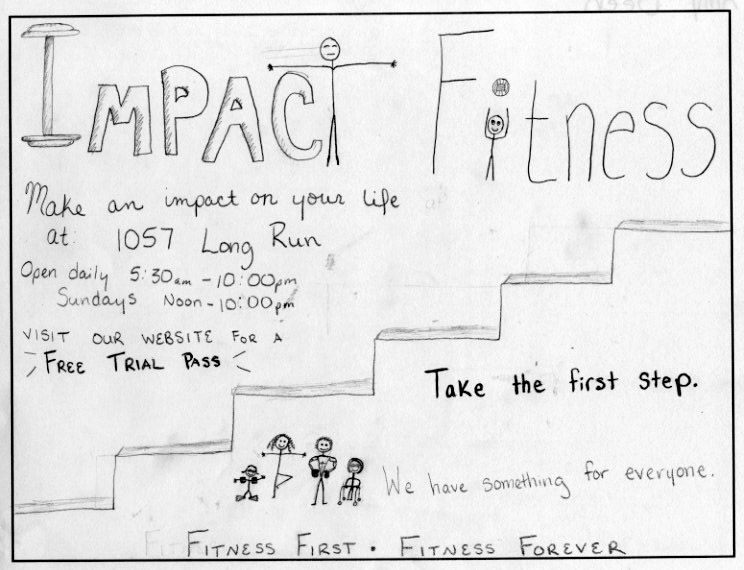 IMPACT Fitness
Make an impact on your life
at: 1057 Long Run
Open daily 5:30am - 10:00pm
Sundays Noon - 10:00pm
VISIT OUR WEBSITE FOR A
FREE TRIAL PASS
Take the first step.
We have something for everyone.
FITNESS FIRST • FITNESS FOREVER